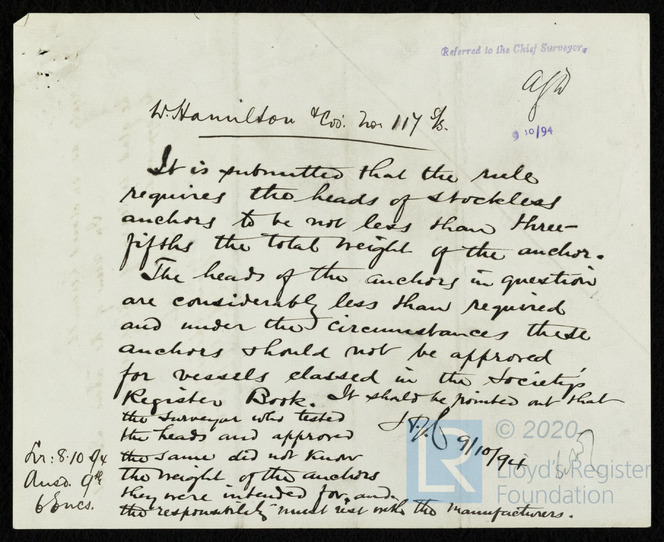 Referred to the Chief Surveyor.
9/10/94
W. Hamilton & Cos. No. 117 S/s.
It is submitted that the rule
requires the heads of stockless
anchors to be not less than three-
fifths the total weight of the anchor.
The heads of the anchors in question
are considerably less than required
and under the circumstances these
anchors should not be approved
for vessels classed in the Society's
Register Book. It should be pointed out that
the Surveyor who tested
the heads and approved
the same did not know
the weight of the anchors
they were intended for, and
the responsibility must rest with the manufacturers.
9/10/94
Lr: 8.10.94
Ansd. 9th
6 Encs.
© 2020
LR
Lloyd's Register
Foundation